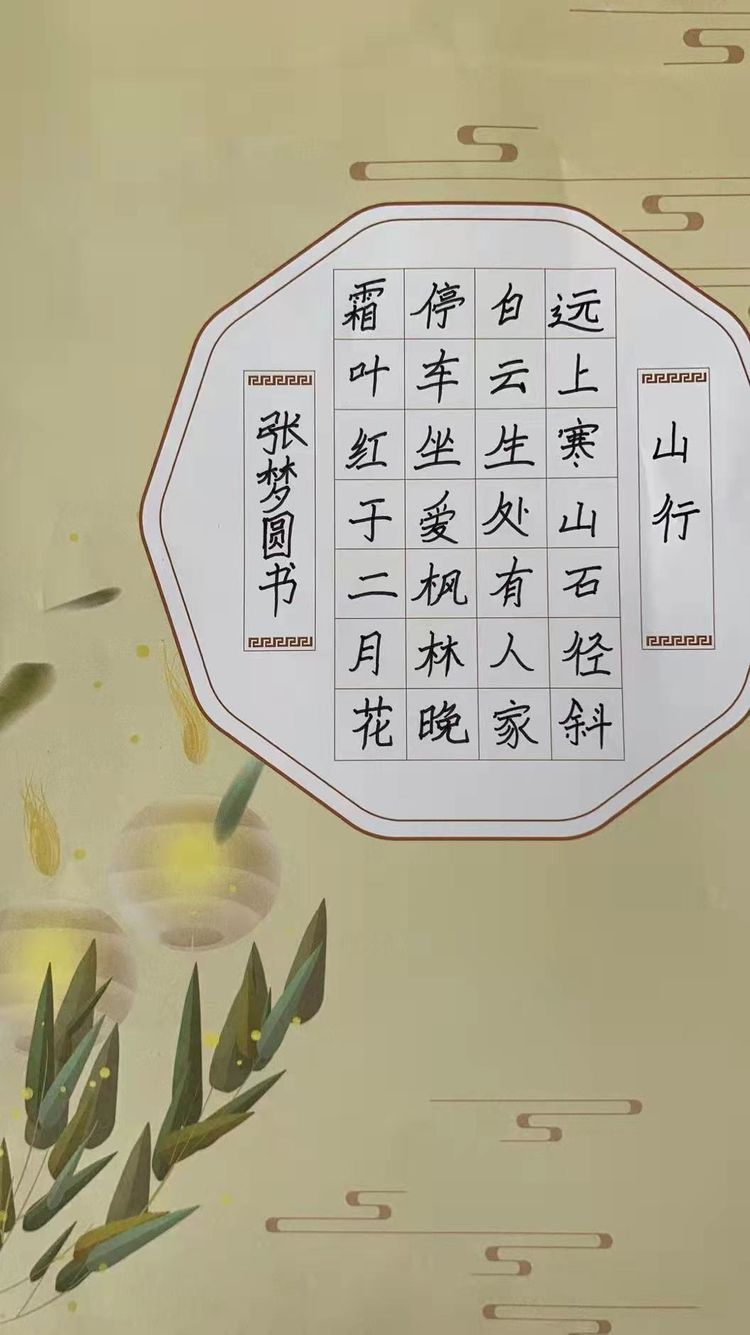 山行
远上寒山石径斜
白云生处有人家
停车坐爱枫林晚
霜叶红于二月花
张梦圆书